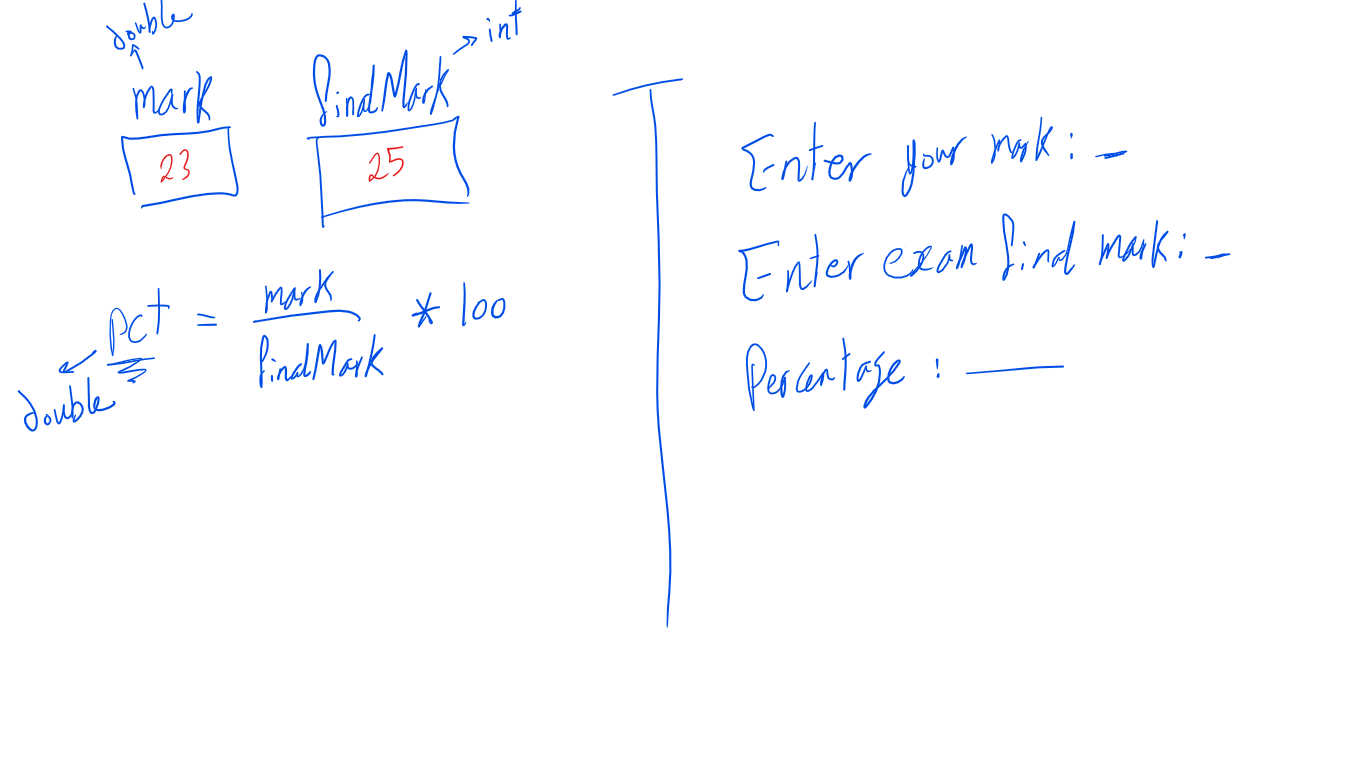 double
int
mark finalMark
23 25
pct = mark / finalMark * 100
double
Enter your mark : _
Enter exam final mark : _
Percentage : ___